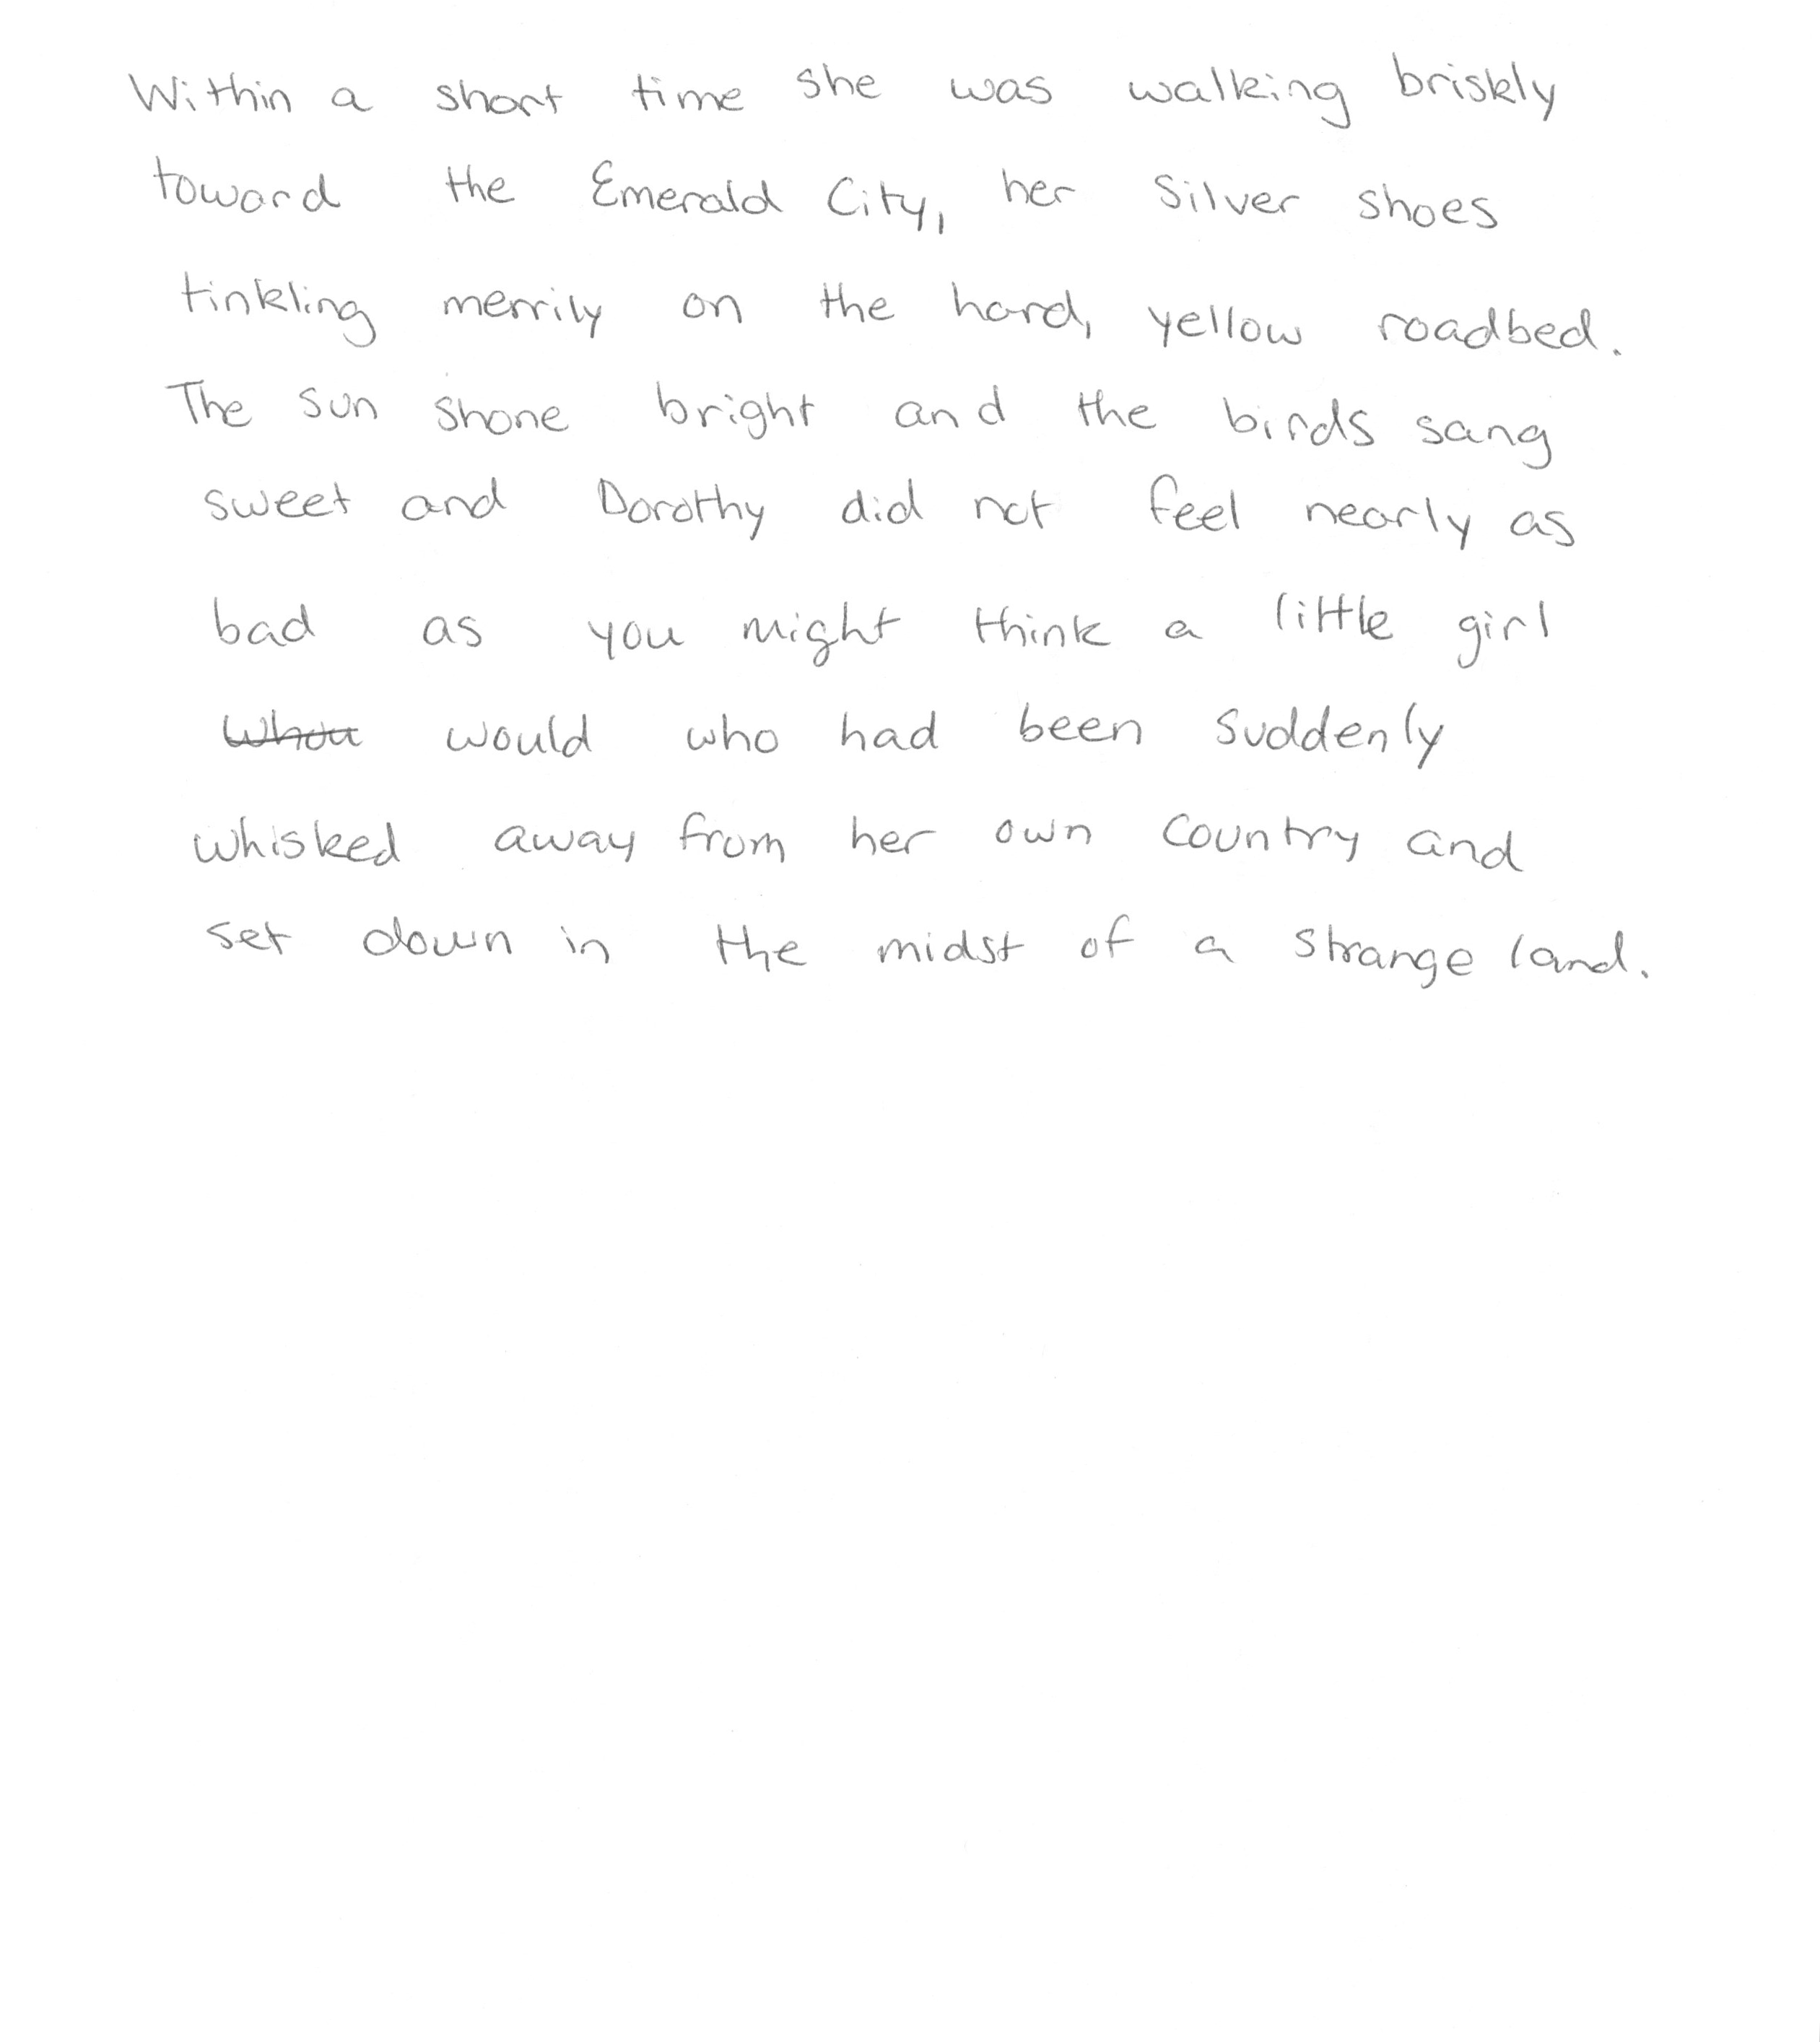 Within a short time she was walking briskly
toward the Emerald City, her Silver shoes
tinkling merrily on the hard, yellow roadbed.
The sun shone bright and the birds sang
sweet and Dorothy did not feel nearly as
bad as you might think a little girl
would who had been suddenly
whisked away from her own country and
set down in the midst of a strange land.